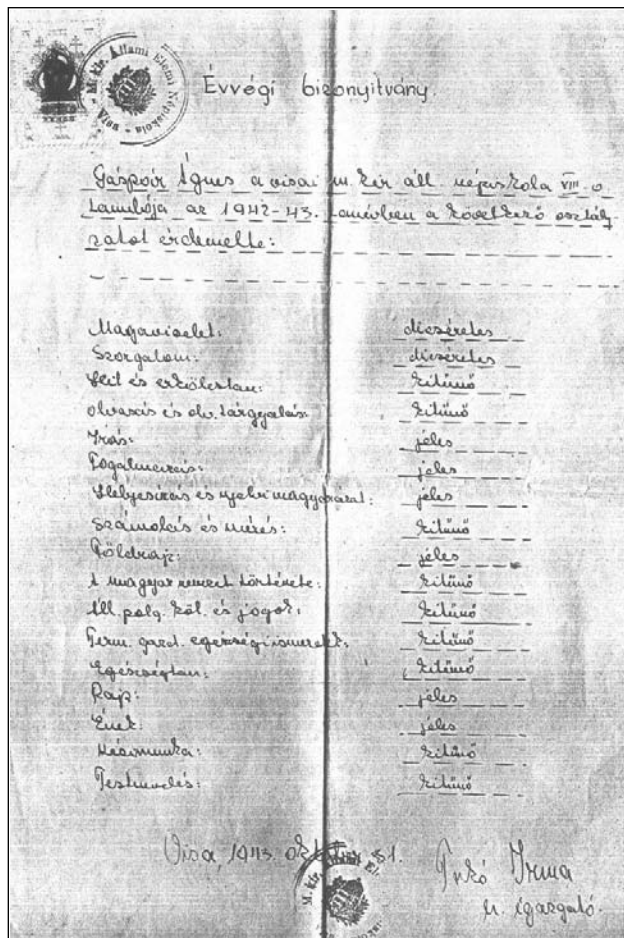 M. kir. Állami Elemi Népiskola • Visa •
Évvégi bizonyítvány.
Gáspár Ágnes a visai m. kir. áll. népiskola VIII. o.
tanulója az 1942-43. tanévben a következő osztály-
zatot érdemelte:
Magaviselet: dicséretes
Szorgalom: dicséretes
Hit és erkölcstan: kitünő
olvasás és olv. tárgyalás: kitünő
Írás: jeles
Fogalmazás: jeles
Helyesírás és nyelvi magyarázat: jeles
Számolás és mérés: kitünő
Földrajz: jeles
A magyar nemzet története: kitünő
Áll. polg. köt. és jogok: kitünő
Term. gazd. egészségi ismeretek: kitünő
Egészségtan: kitünő
Rajz: jeles
Ének: jeles
Kézimunka: kitünő
Testnevelés: kitünő
Visa, 1943. 31.
M. kir. Állami El
Irma
igazgató.